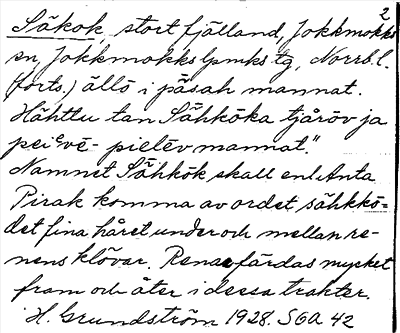 2
Säkok, stort fjälland, Jokkmokks
sn, Jokkmokks lpmks tg, Norrb.l.
(forts.) ällö i päsah mannat.
Hähttu tan Sähköka tjåröv ja
pei vē- pielēv mannat."
Namnet Sähkök skall enl. Anta
Pirak komma av ordet sähkkö=
det fina håret under och mellan re-
nens klövar. Renar färdas mycket
fram och åter i dessa trakter.
H. Grundström 1928. SOA 42